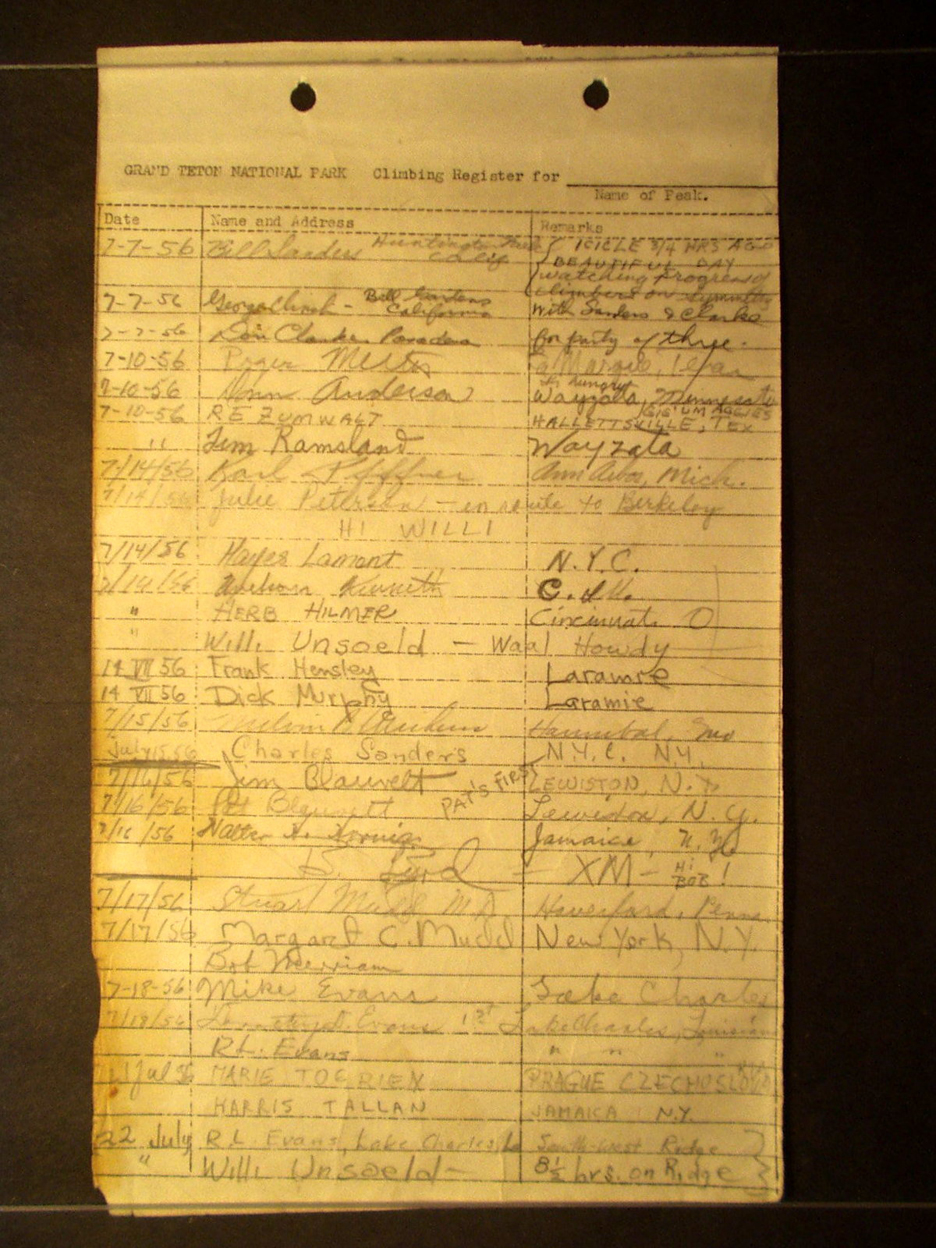 GRAND TETON NATIONAL PARK Climbing Register for
Name of Peak.
Date Name and Address Remarks
7-7-56 Bill Sanders Huntington Calif ICICLE 3/4 HRS AGO
BEAUTIFUL DAY
watching progress of
climbers on
7-7-56 George California With Sanders & Clarke
7-7-56 Don Clarke Pasadena for party of three.
7-10-56 Roger
7-10-56 Anderson Wayzata, Minnesota
7-10-56 R E ZUMWALT HALLETTSVILLE, TEX
" Jim Ramsland Wayzata
7/14/56 Karl Pfiffner Ann Arbor, Mich.
7/14/56 Julie Peterson - en route to Berkeley
HI WILLI
7/14/56 Hayes Lamont N.Y.C.
7/14/56 Kenneth
" HERB HILMER Cincinnati O
" Willi Unsoeld - Waal Howdy
14 VII 56 Frank Hensley Laramie
14 VII 56 Dick Murphy Laramie
7/15/56 Hannibal, Mo
July 15 56 Charles Sanders N.Y.C. N.Y.
7/16/56 Jim Blauvelt PAT'S FIRST LEWISTON, N.Y.
7/16/56 Pat Lewiston, N.Y.
7/16/56 Walter Jamaica, N.Y.
- XM - Hi BOB!
7/17/56 Stuart Mudd M.D. Haverford, Penna.
7/17/56 Margaret C. Mudd New York, N.Y.
Bob Merriam
7-18-56 Mike Evans Lake Charles
7/18/56 Evans 1st Lake Charles, Louisiana
R.L. Evans " " "
Jul 56 MARIE PRAGUE CZECHOSLOV
HARRIS TALLAN JAMAICA N.Y.
22 July R.L. Evans, Lake Charles, La South-west Ridge
" Willi Unsoeld - 8½ hrs. on Ridge